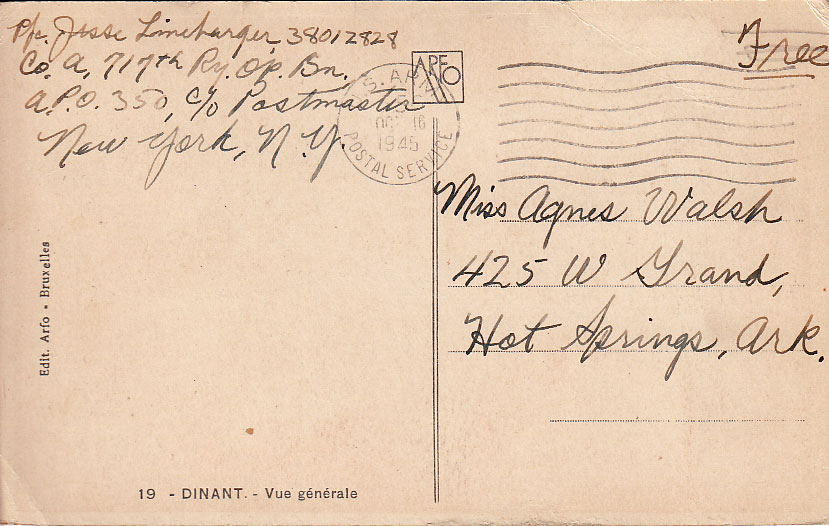 Pfc. Jesse Limebarger 38012828
Co. A, 717th Ry. Op. Bn.,
A.P.O. 350, c/o Postmaster
New York, N.Y.
ARFO
Free
U.S. ARMY
OCT 16
1945
POSTAL SERVICE
Miss Agnes Walsh
425 W Grand,
Hot Springs, Ark.
Edit. Arfo • Bruxelles
19 - DINANT. - Vue générale